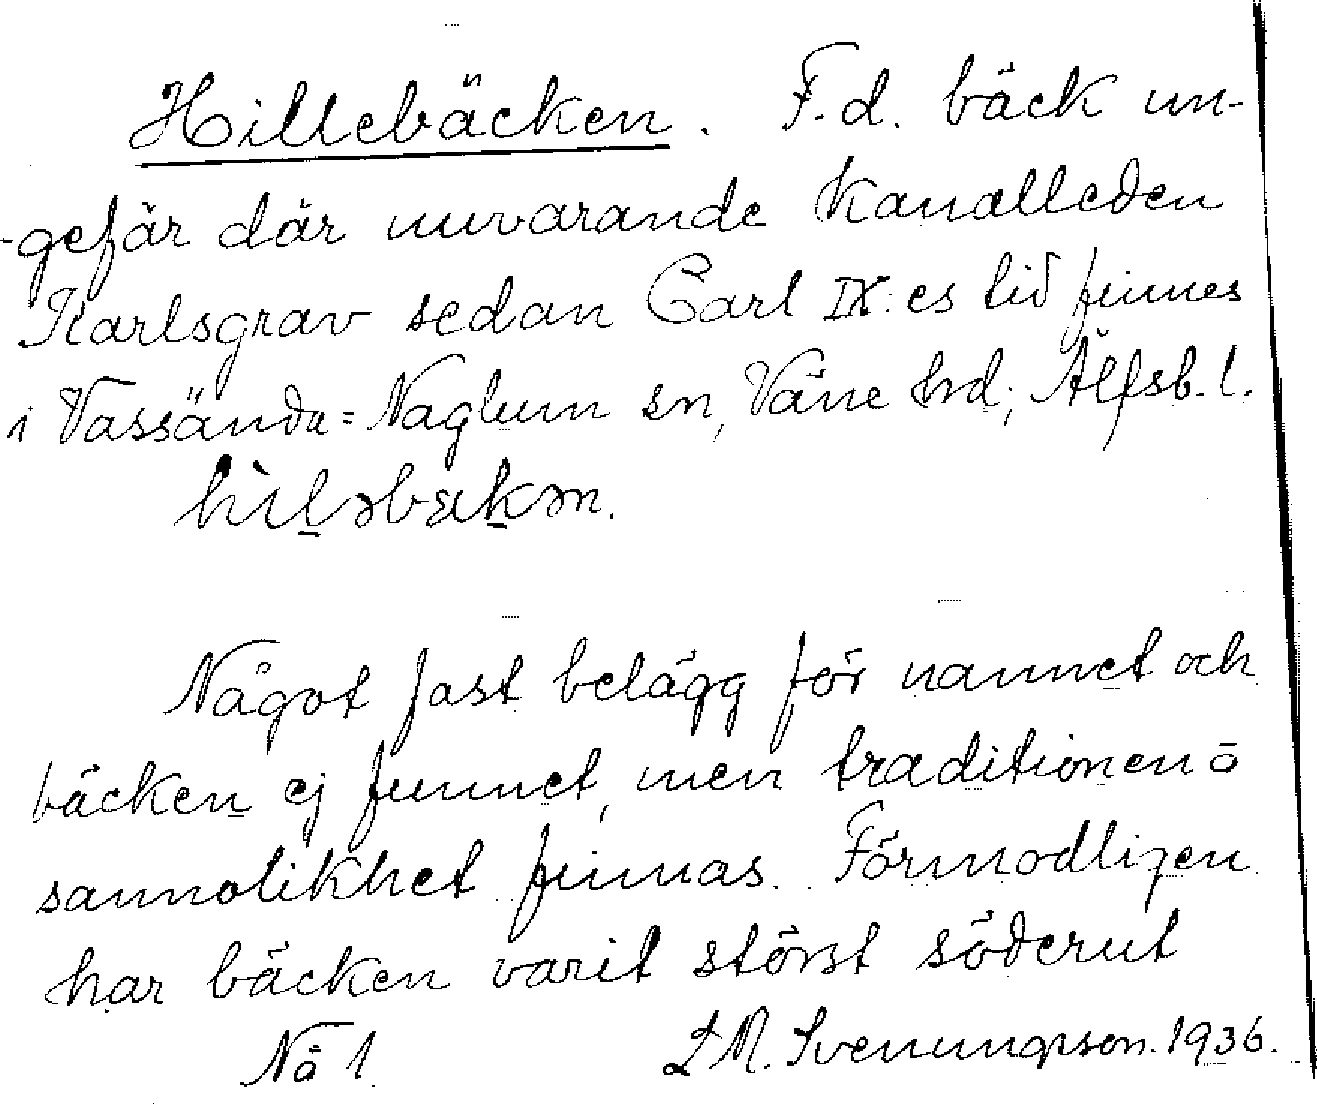 Hillebäcken. F.d. bäck un-
-gefär där nuvarande Kanalleden
Karlsgrav sedan Carl IX:es tid finnes
i Vassända=Naglum sn, Väne hrd; Älfsb. l.
hìləbækən.
Något fast belägg för namnet och
bäcken ej funnet, men tradition en o
sannolikhet finnas. Förmodligen
har bäcken varit störst söderut
Nå 1. L M. Svenungsson. 1936.